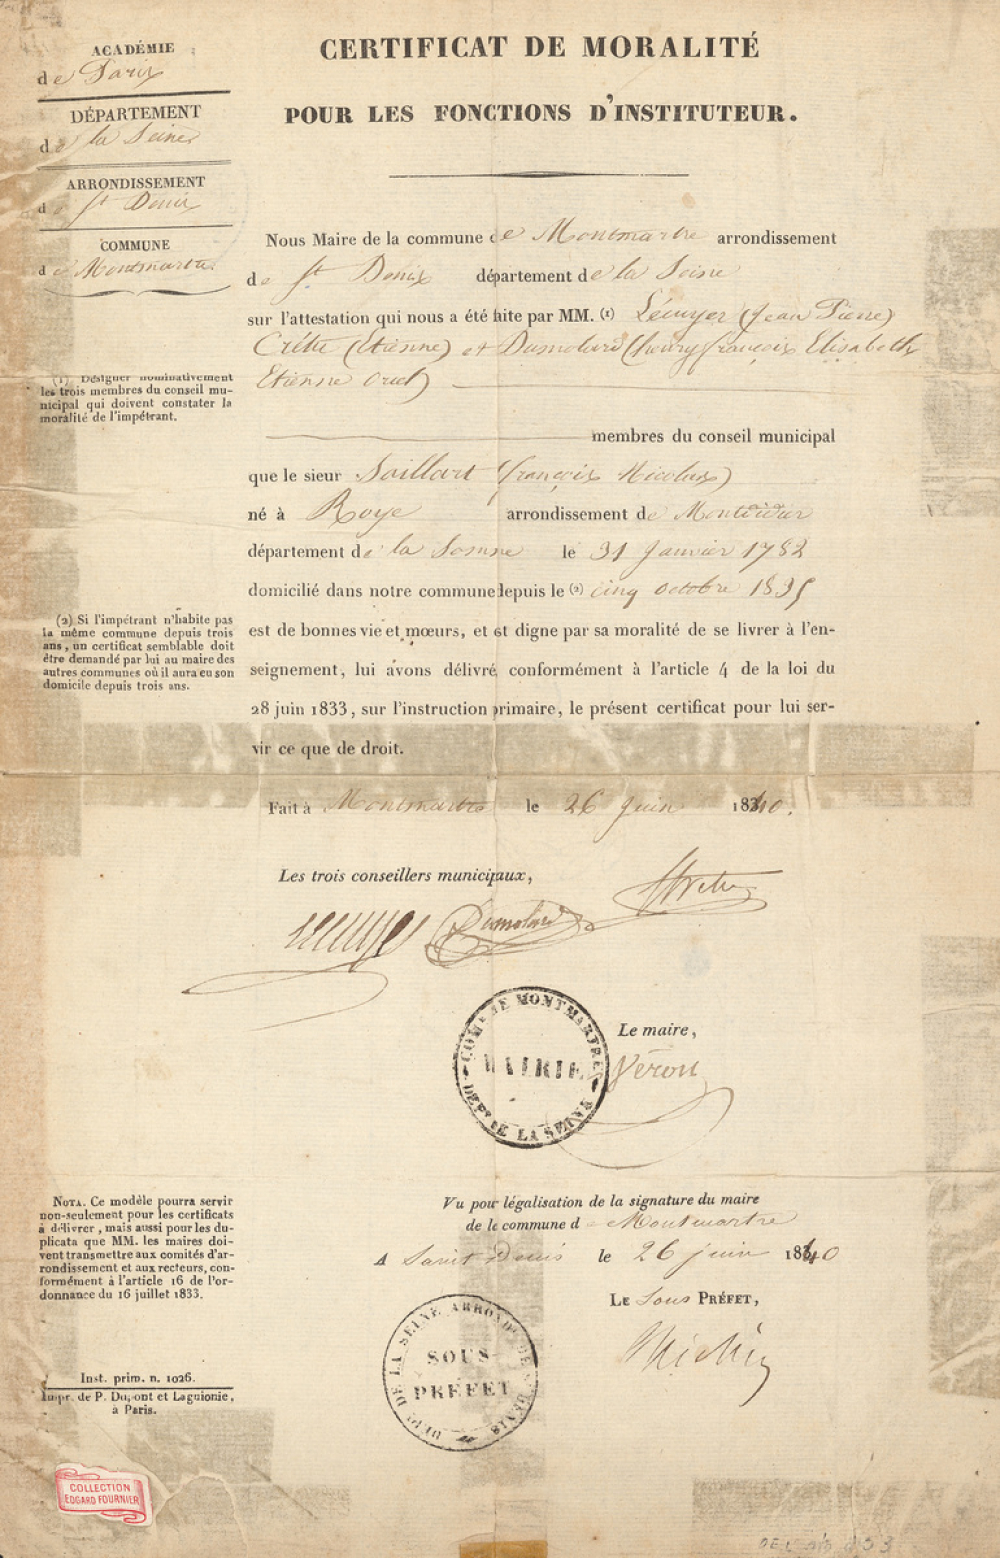 ACADÉMIE
de Paris
DÉPARTEMENT
de la Seine
ARRONDISSEMENT
de St Denis
COMMUNE
de Montmartre
CERTIFICAT DE MORALITÉ
POUR LES FONCTIONS D'INSTITUTEUR.
Nous Maire de la commune de Montmartre arrondissement
de St Denis département de la Seine
sur l'attestation qui nous a été faite par MM. (1) Lécuyer (Jean Pierre)
(Etienne) et Dumolard (henry françois Elisabeth
Etienne
(1) Désigner nominativement
les trois membres du conseil mu-
nicipal qui doivent constater la
moralité de l'impétrant.
membres du conseil municipal
que le sieur Saillart (françois Nicolas)
né à Roye arrondissement de Montdidier
département de la Somme le 31 Janvier 1782
domicilié dans notre commune depuis le (2) cinq octobre 1835
est de bonnes vie et mœurs, et est digne par sa moralité de se livrer à l'en-
seignement, lui avons délivré, conformément à l'article 4 de la loi du
28 juin 1833, sur l'instruction primaire, le présent certificat pour lui ser-
vir ce que de droit.
(2) Si l'impétrant n'habite pas
la même commune depuis trois
ans, un certificat semblable doit
être demandé par lui au maire des
autres communes où il aura eu son
domicile depuis trois ans.
Fait à Montmartre le 26 Juin 1840.
Les trois conseillers municipaux,
Lécuyer Dumolard
COMNE DE MONTMARTRE
MAIRIE
DEPT DE LA SEINE
Le maire,
Véron
NOTA. Ce modèle pourra servir
non-seulement pour les certificats
à délivrer, mais aussi pour les du-
plicata que MM. les maires doi-
vent transmettre aux comités d'ar-
rondissement et aux recteurs, con-
formément à l'article 16 de l'or-
donnance du 16 juillet 1833.
Vu pour légalisation de la signature du maire
de la commune de Montmartre
A Saint Denis le 26 juin 1840
LE Sous PRÉFET,
DEPT DE LA SEINE ARRONDT DE ST DENIS
SOUS-
PRÉFET
Inst. prim. n. 1026.
Impr. de P. Dupont et Laguionie,
à Paris.
COLLECTION
EDGARD FOURNIER